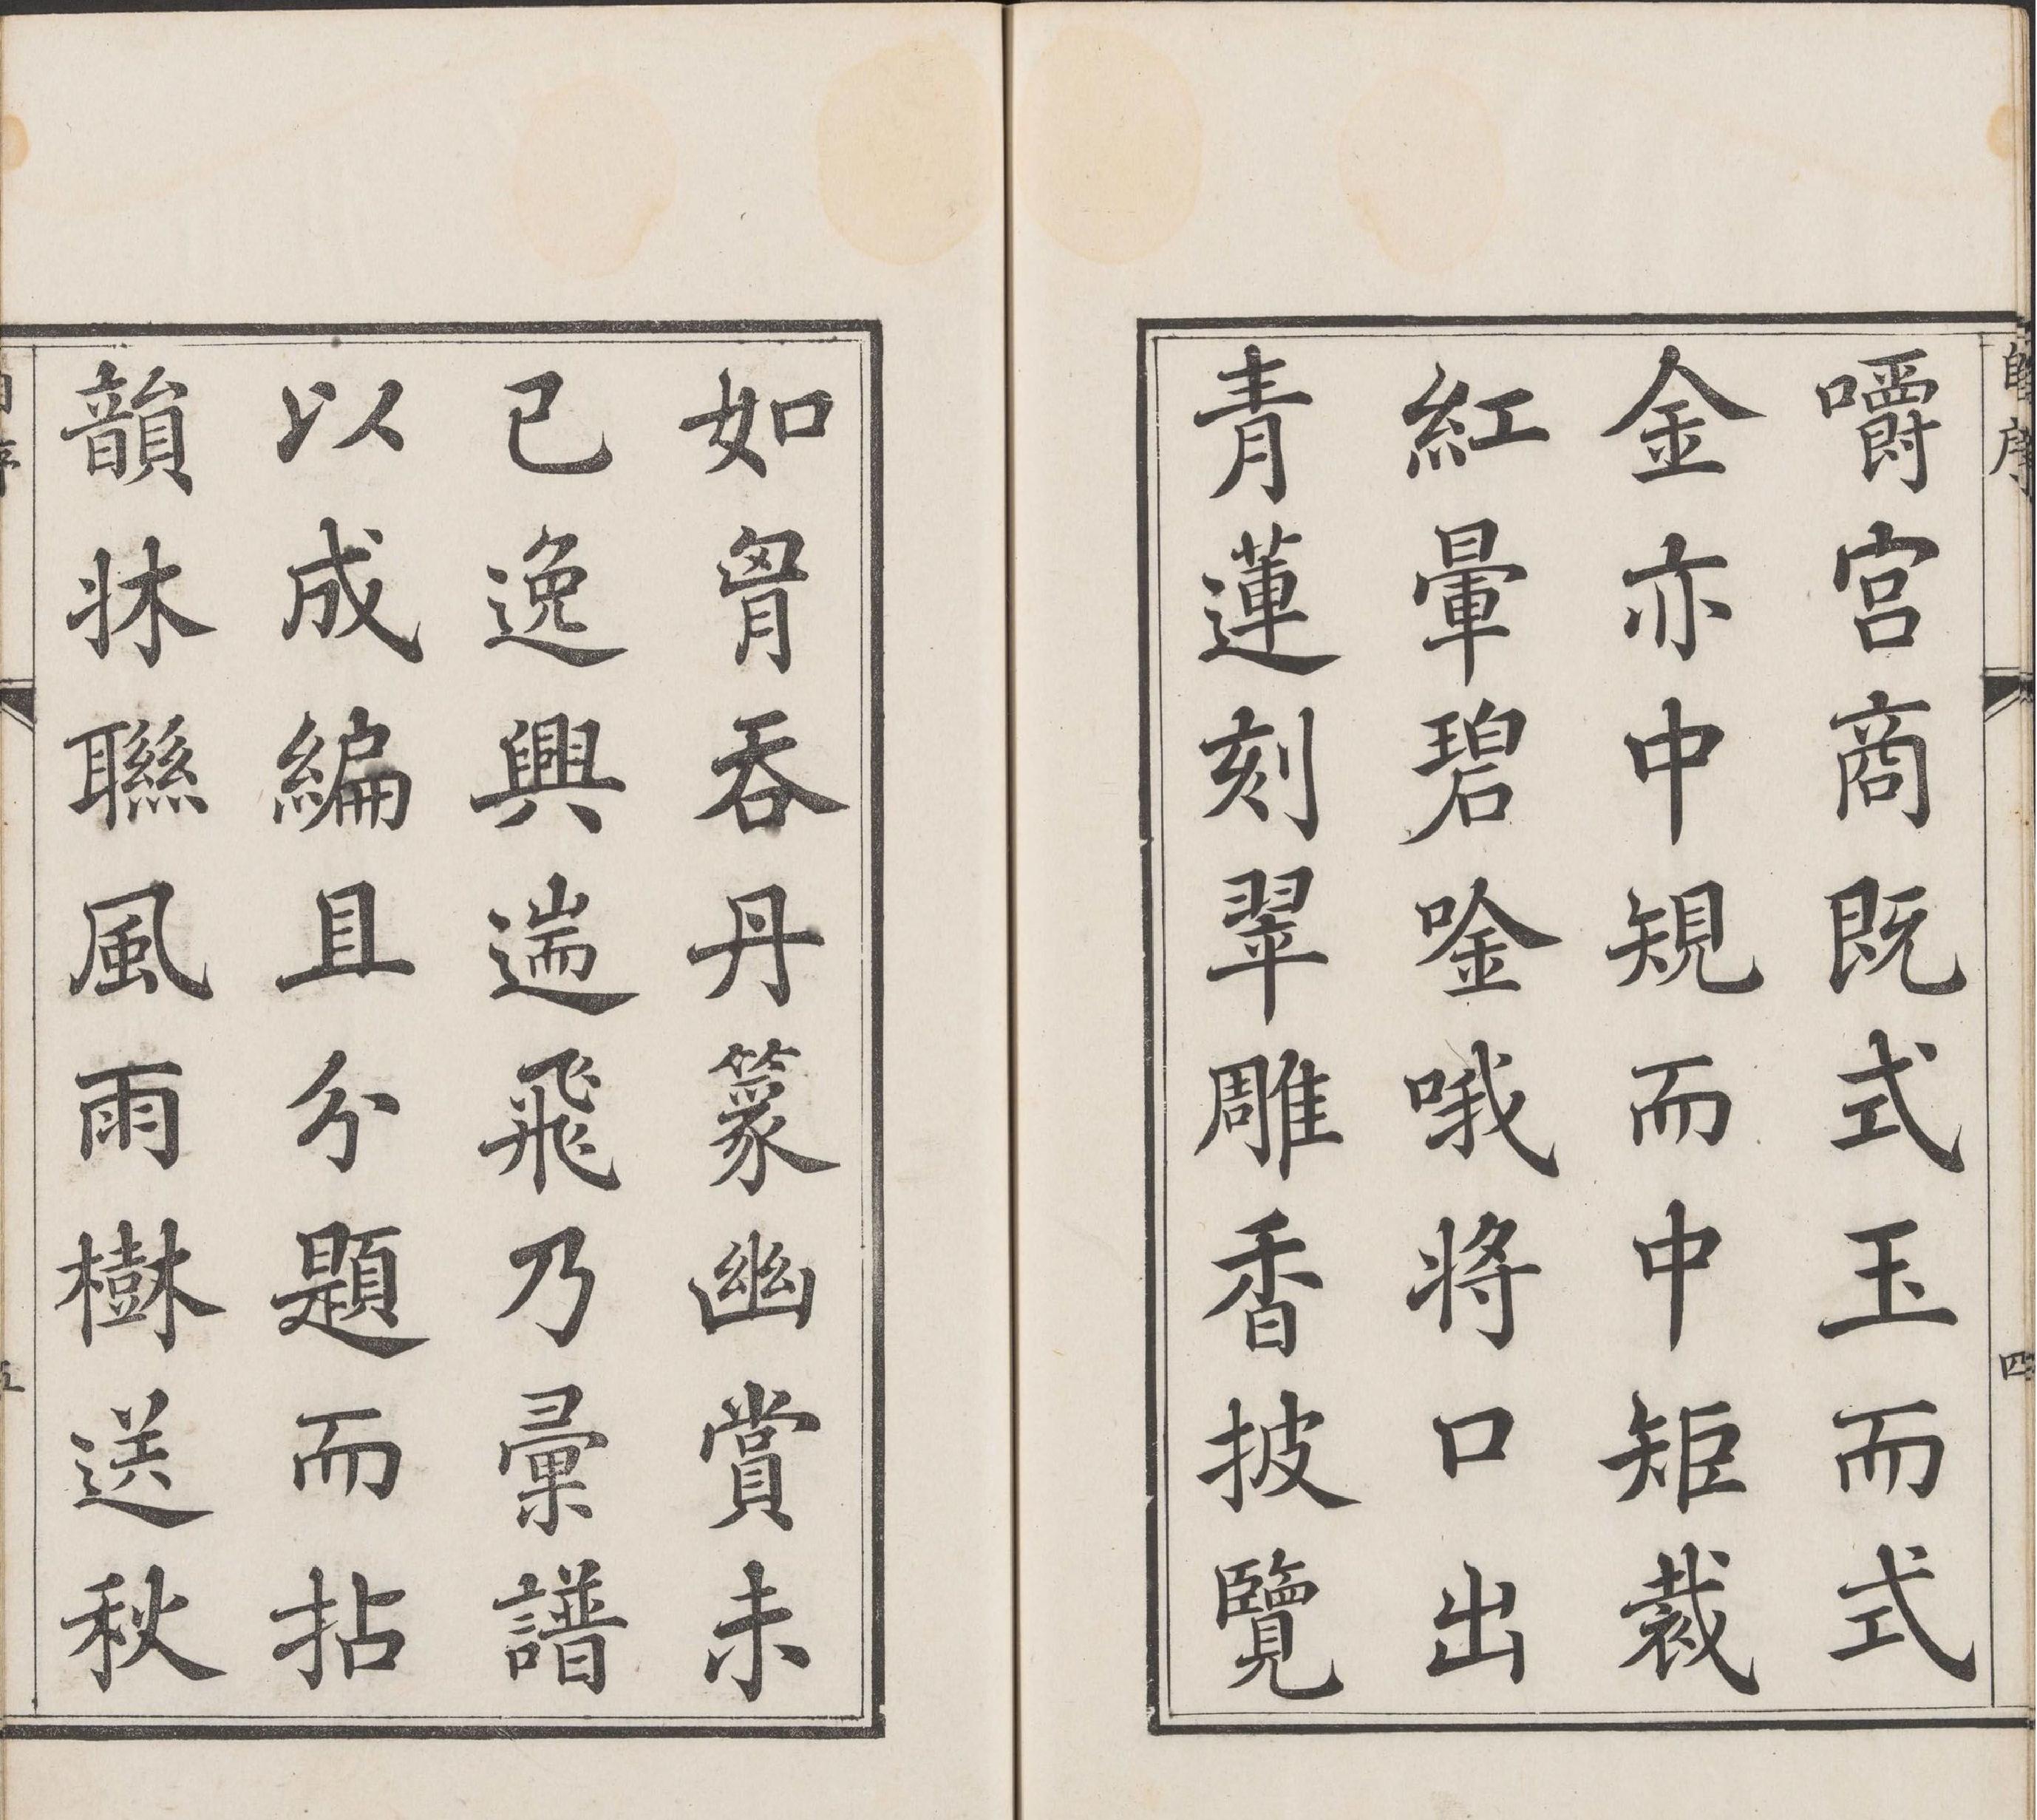 自序
四
嚼宫商既式玉而式
金亦中規而中矩裁
紅暈碧唫哦将口出
青蓮刻翠雕香披覽
如胷吞丹篆幽賞未
已逸興遄飛乃彙譜
以成編且分題而拈
韻牀聯風雨樹送秋
自序
五